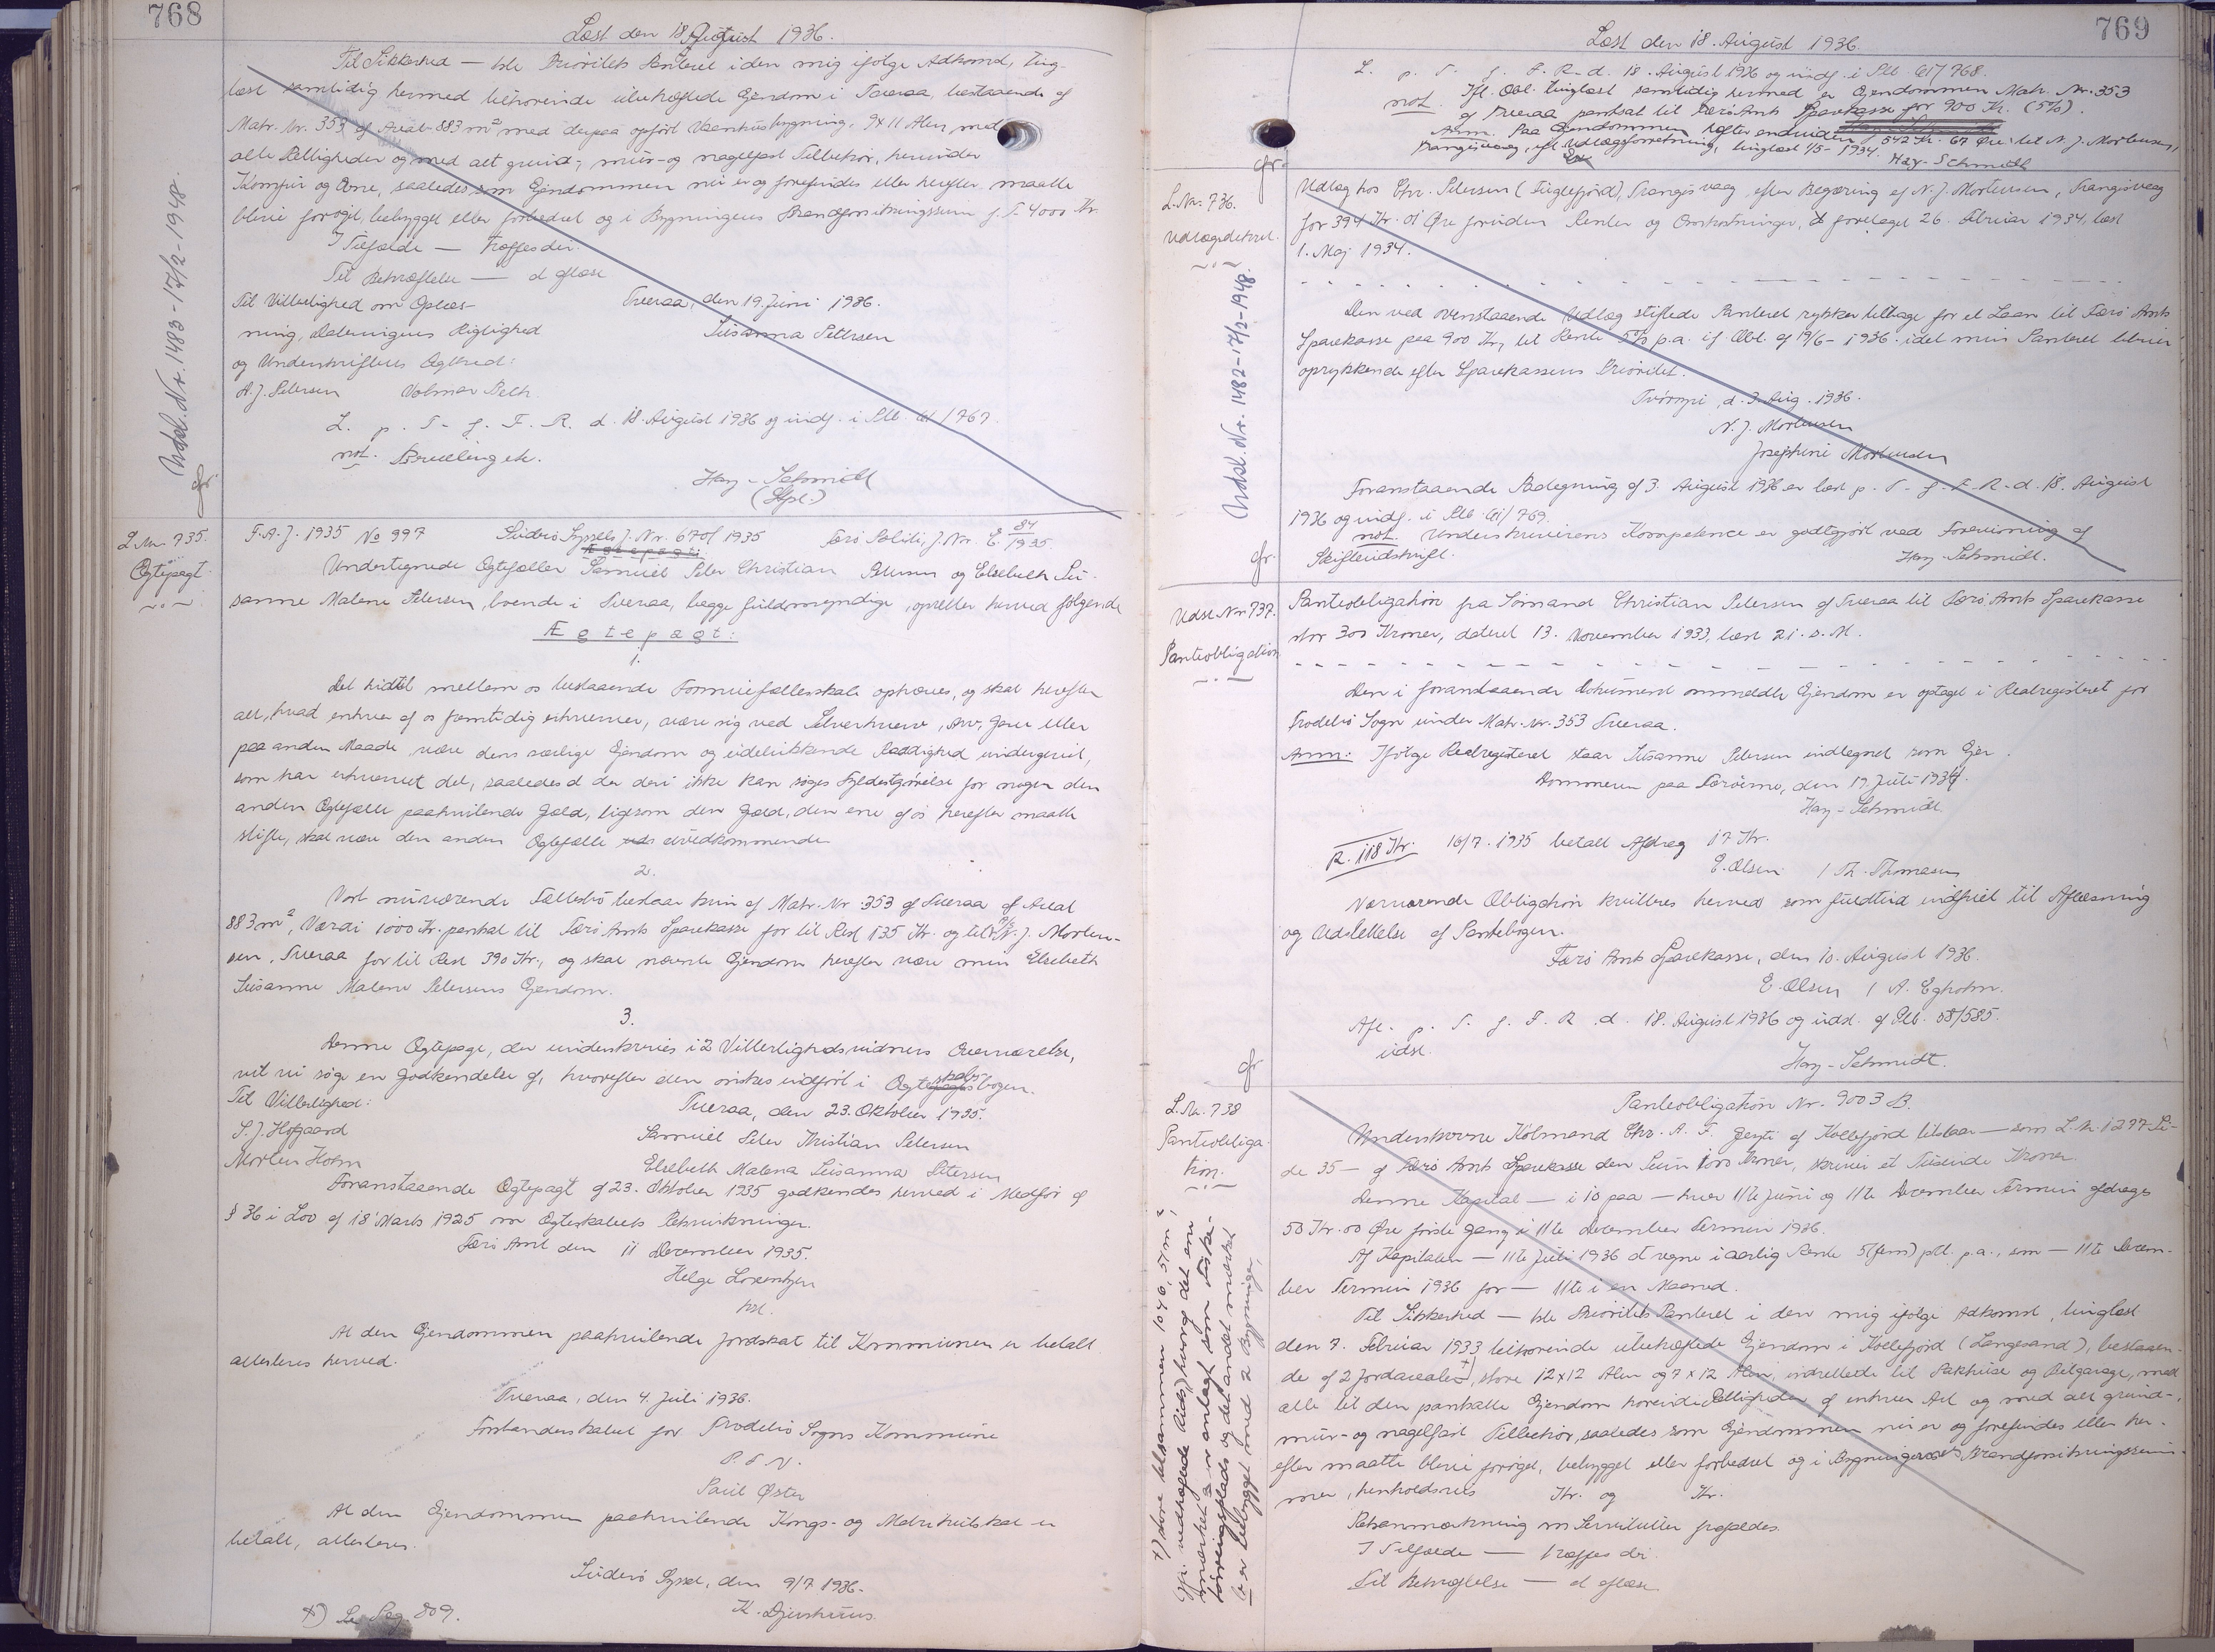 768
Læst den 18 August 1936.
Til Sikkerhed — ste Prioritets Panteret i den mig ifølge Adkomst, ting-
læst samtidig hermed tilhørende ubehæftede Ejendom i Tveraa, bestaaende af
Matr. Nr. 353 af Areal 883 m² med derpaa opført Vaaningsbygning, 9 x 11 Alen, med
alle Rettigheder og med alt grund-, mur- og nagelfast Tilbehør, herunder
Komfur og Ovne, saaledes som Ejendommen nu er og forefindes eller herefter maatte
blive forøget, bebygget eller forbedret og i Bygningens Brandforsikringssum f. T. 4000 Kr.
I Tilfælde — træffes der.
Til Bekræftelse — at aflæse
Til Vitterlighed om Oplæs-
ning, Dateringens Rigtighed
og Underskriftens Ægthed:
A. J. Petersen Volmar Bech
Tveraa, den 19. Juni 1936.
Susanna Petersen
L. p. T. f. F. R. d. 18. August 1936 og indf. i Ptb. 61/767.
not.
Hay-Schmidt
(Stpl.)
Udsl. Nr. 1483 - 17/2 - 1948.
L. Nr. 735.
Ægtepagt.
F.A.J. 1935 No 997 Suderø Syssels J. Nr. 670/1935 Færø Politi, J. Nr. E. 84/1935
Undertegnede Ægtefæller Samuel Peter Christian Petersen og Elsebeth Su-
sanne Malene Petersen, boende i Tveraa, begge fuldmyndige, opretter herved følgende
Ægtepagt:
1.
Det hidtil mellem os bestaaende Formuefællesskab ophæves, og skal herefter
alt, hvad enhver af os fremtidig erhverver, være sig ved Selverhverv, Arv, Gave eller
paa anden Maade være dens særlige Ejendom og udelukkende Raadighed undergivet,
som har erhvervet det, saaledes at der deri ikke kan søges Fyldestgørelse for nogen den
anden Ægtefælle paahvilende Gæld, ligesom den Gæld, den ene af os herefter maatte
stifte, skal være den anden Ægtefælle uvedkommende
2.
Vort nuværende Fællesbo bestaar kun af Matr. Nr. 353 af Tveraa af Areal
883 m², Værdi 1000 Kr. pantsat til Færø Amts Sparekasse for til Rest 135 Kr. og til N. J. Morten-
sen, Tveraa for til Rest 390 Kr., og skal nævnte Ejendom herefter være min Elsebeth
Susanne Malene Petersens Ejendom.
3.
Denne Ægtepagt, der underskrives i 2 Vitterlighedsvidners Overværelse,
vil vi søge en Godkendelse af, hvorefter den ønskes indført i Ægteskabsbogen.
Til Vitterlighed:
S. J. Hofgaard
Morten Holm
Tveraa, den 23. Oktober 1935.
Samuel Peter Kristian Petersen
Elsebeth Malena Susanna Petersen
Foranstaaende Ægtepagt af 23. Oktober 1935 godkendes herved i Medfør af
§ 36 i Lov af 18' Marts 1925 om Ægteskabets Retsvirkninger.
Færø Amt den 11 December 1935.
Helge Lorentzen
kst.
At den Ejendommen paahvilende Jordskat til Kommunen er betalt
attesteres herved.
Tveraa, den 4. Juli 1936.
Forstanderskabet for Frodebø Sogns Kommune
P. F. V.
Paul Øster
At den Ejendommen paahvilende Kongs- og Matrikulskat er
betalt, attesteres.
Suderø Syssel, den 9/7 1936.
K. Djurhuus.
+) Se Pag. 809.
769
Læst den 18. August 1936.
L. p. T. f. F. R. d. 18. August 1936 og indf. i Ptb. 61/768.
not. Ifl. Obl. tinglæst samtidig hermed er Ejendommen Matr. Nr. 353
af Tveraa pantsat til Færø Amts Sparekasse for 900 Kr. (5%).
Anm. Paa Ejendommen hæfter endvidere 542 Kr. 67 Øre til N. J. Mortensen,
Trangisvaag, ifl. Udlægsforretning, tinglæst 1/5-1934. Hay-Schmidt
L. Nr. 736.
Udlægsdekret.
Udlæg hos Chr. Petersen (Fuglefjord), Trangisvaag efter Begæring af N. J. Mortensen, Trangisvaag
for 394 Kr. 01 Øre foruden Renter og Omkostninger, foretaget 26. Februar 1934, læst
1. Maj 1934.
Den ved ovenstaaende Udlæg stiftede Panteret rykker tilbage for et Laan til Færø Amts
Sparekasse paa 900 Kr., til Rente 5% p.a. ifl. Obl. af 19/6-1936. idet min Panteret bliver
oprykkende efter Sparekassens Prioritet.
Tvøroyri, d. 3. Aug. 1936.
N. J. Mortensen
Josephine Mortensen
Foranstaaende Paategning af 3. August 1936 er læst p. T. f. F. R. d. 18. August
1936 og indf. i Ptb. 61/769.
not. Underskriverens Kompetence er godtgjort ved Forevisning af
Skifteudskrift. Hay-Schmidt.
Udsl. Nr. 1482 - 17/2 - 1948.
Udsl. Nr. 737.
Panteobligation
Panteobligation fra Sømand Christian Petersen af Tveraa til Færø Amts Sparekasse
stor 300 Kroner, dateret 13. November 1933, læst 21. s. M.
Den i foranstaaende Dokument ommeldte Ejendom er optaget i Realregisteret for
Frodebø Sogn under Matr. Nr. 353 Tveraa.
Anm: Ifølge Realregisteret staar Susanne Petersen indtegnet som Ejer.
Dommeren paa Færøerne, den 19 Juli 1934.
Hay-Schmidt
R. 118 Kr. 16/7. 1935 betalt Afdrag 17 Kr.
E. Olsen / Th. Thomasen
Nærværende Obligation kvitteres herved som fuldtud indfriet til Aflæsning
og Udslettelse af Pantebogen.
Færø Amts Sparekasse, den 10. August 1936.
E. Olsen / A. Egholm.
Afl. p. T. f. F. R. d. 18. August 1936 og udsl. af Ptb. 58/585.
udsl.
Hay-Schmidt.
L. Nr. 738
Panteobliga-
tion.
Panteobligation Nr. 9003 B.
Underskrevne Købmand Chr. A. F. Jenti af Kollefjord tilstaar — som L. Nr. 1297 Si-
de 35 — af Færø Amts Sparekasse den Sum 1000 Kroner, skriver et Tusinde Kroner.
Denne Kapital — i 10 paa — hver 11te Juni og 11te December Termin afdrages
50 Kr. 00 Øre første Gang i 11te December Termin 1936.
Af Kapitalen — 11te Juli 1936 at regne i aarlig Rente 5 (fem) pCt. p.a., som — 11te Decem-
ber Termin 1936 for — 11te i en Maaned.
Til Sikkerhed — ste Prioritets Panteret i den mig ifølge Adkomst, tinglæst
den 7. Februar 1933 tilhørende ubehæftede Ejendom i Kollefjord (Langesand), bestaaen-
de af 2 Jordarealer +), store 12 x 12 Alen og 7 x 12 Alen, indrettede til Pakhuse og Bilgarage, med
alle til den pantsatte Ejendom hørende Rettigheder af enhver Art og med alt grund-,
mur- og nagelfast Tilbehør, saaledes som Ejendommen nu er og forefindes eller her-
efter maatte blive forøget, bebygget eller forbedret og i Bygningernes Brandforsikringssum-
mer, henholdsvis Kr. og Kr.
Retsanmærkning om Servitutter frafaldes.
I Tilfælde — træffes der.
Til Bekræftelse — at aflæse
+) store tilsammen 1046,51 m²,
jfr. vedhæftede Rids, hvoraf det ene,
mærket a er anlagt som Fiske-
tørringsplads og det andet mærket
b er bebygget med 2 Bygninger,